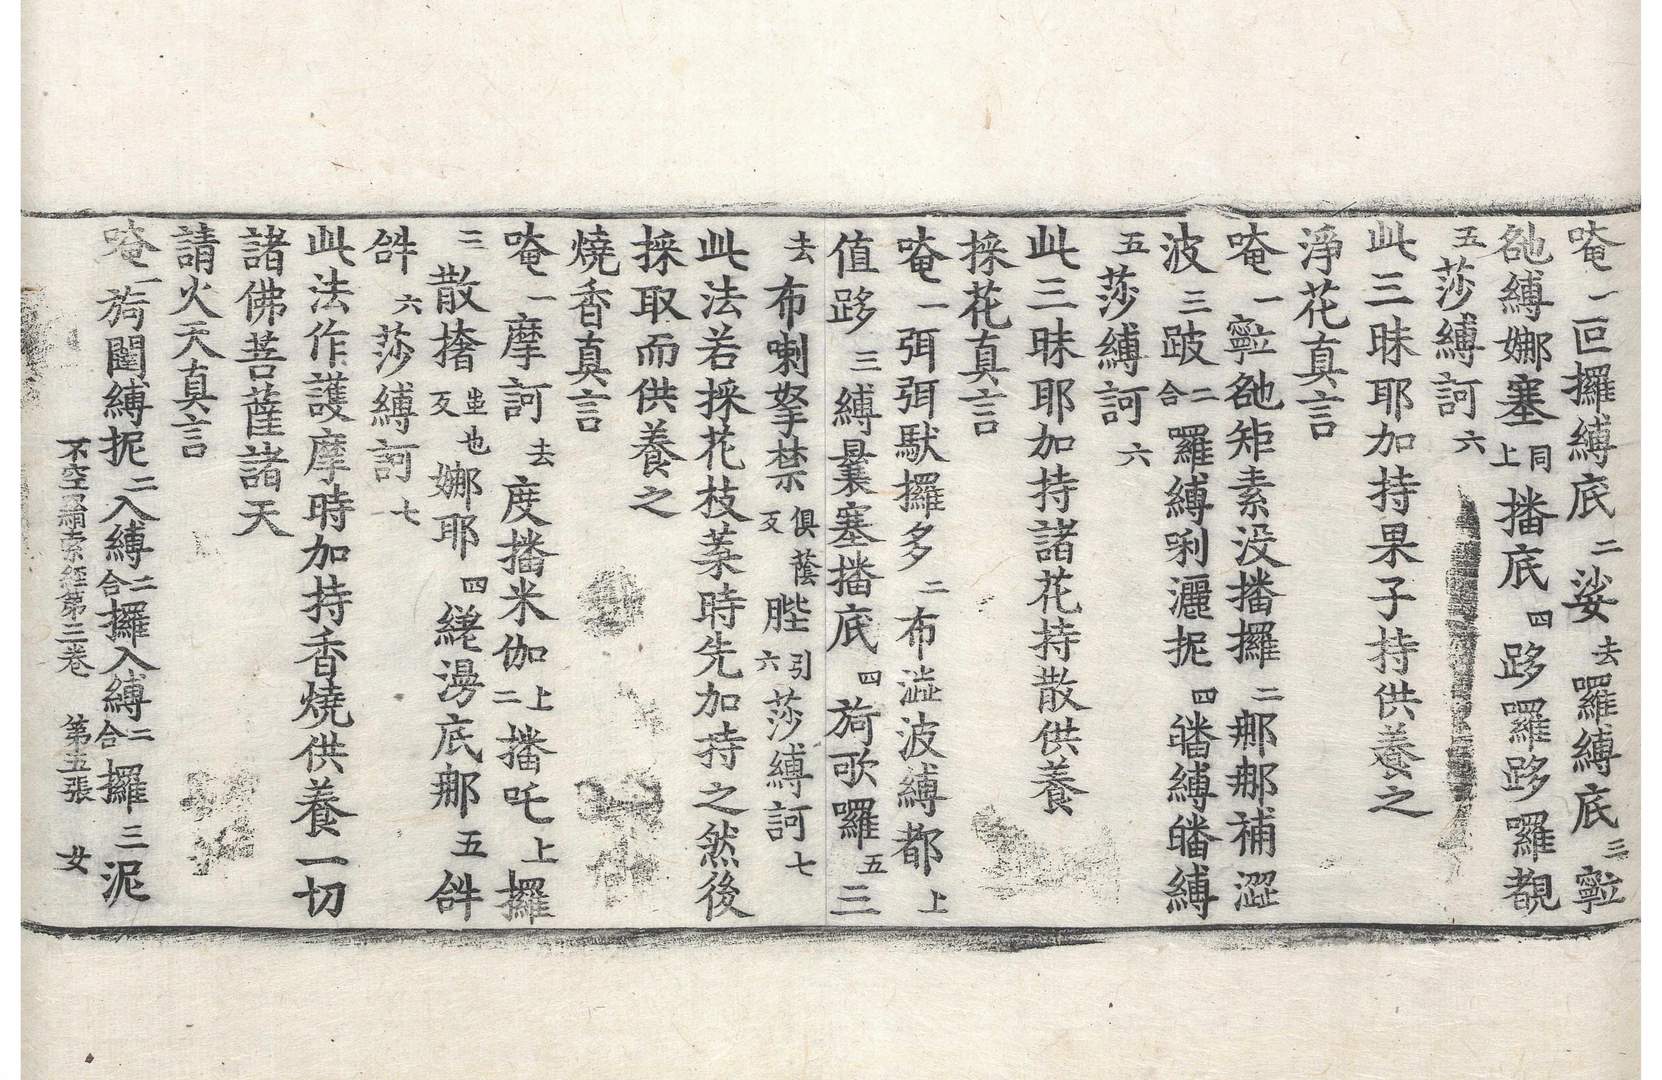 唵一叵攞縛底二娑去羅縛底三𡫸
䂨縛娜塞同上播底四跢羅跢囉覩
五莎縛訶六
此三昧耶加持果子持供養之
淨花真言
唵一𡫸䂨矩素没播攞二那那補澀
波三跛二合羅縛唎灑抳四皤縛皤縛
五莎縛訶六
此三昧耶加持諸花持散供養
採花真言
唵一弭弭馱攞多二布澁波縛都上
值跢三縛曩塞播底四旖歌囉五三
去布喇拏禁俱蔭反胜引六莎縛訶七
此法若採花枝葉時先加持之然後
採取而供養之
燒香真言
唵一摩訶去度播米伽上二播吒上攞
三散㩉虫也反娜耶四繞漫底那五𤙖
𤙖六莎縛訶七
此法作護摩時加持香燒供養一切
諸佛菩薩諸天
請火天真言
唵一旖闇縛抳二入縛二合攞入縛二合攞三泥
不空羂索經第三卷 第五張 女